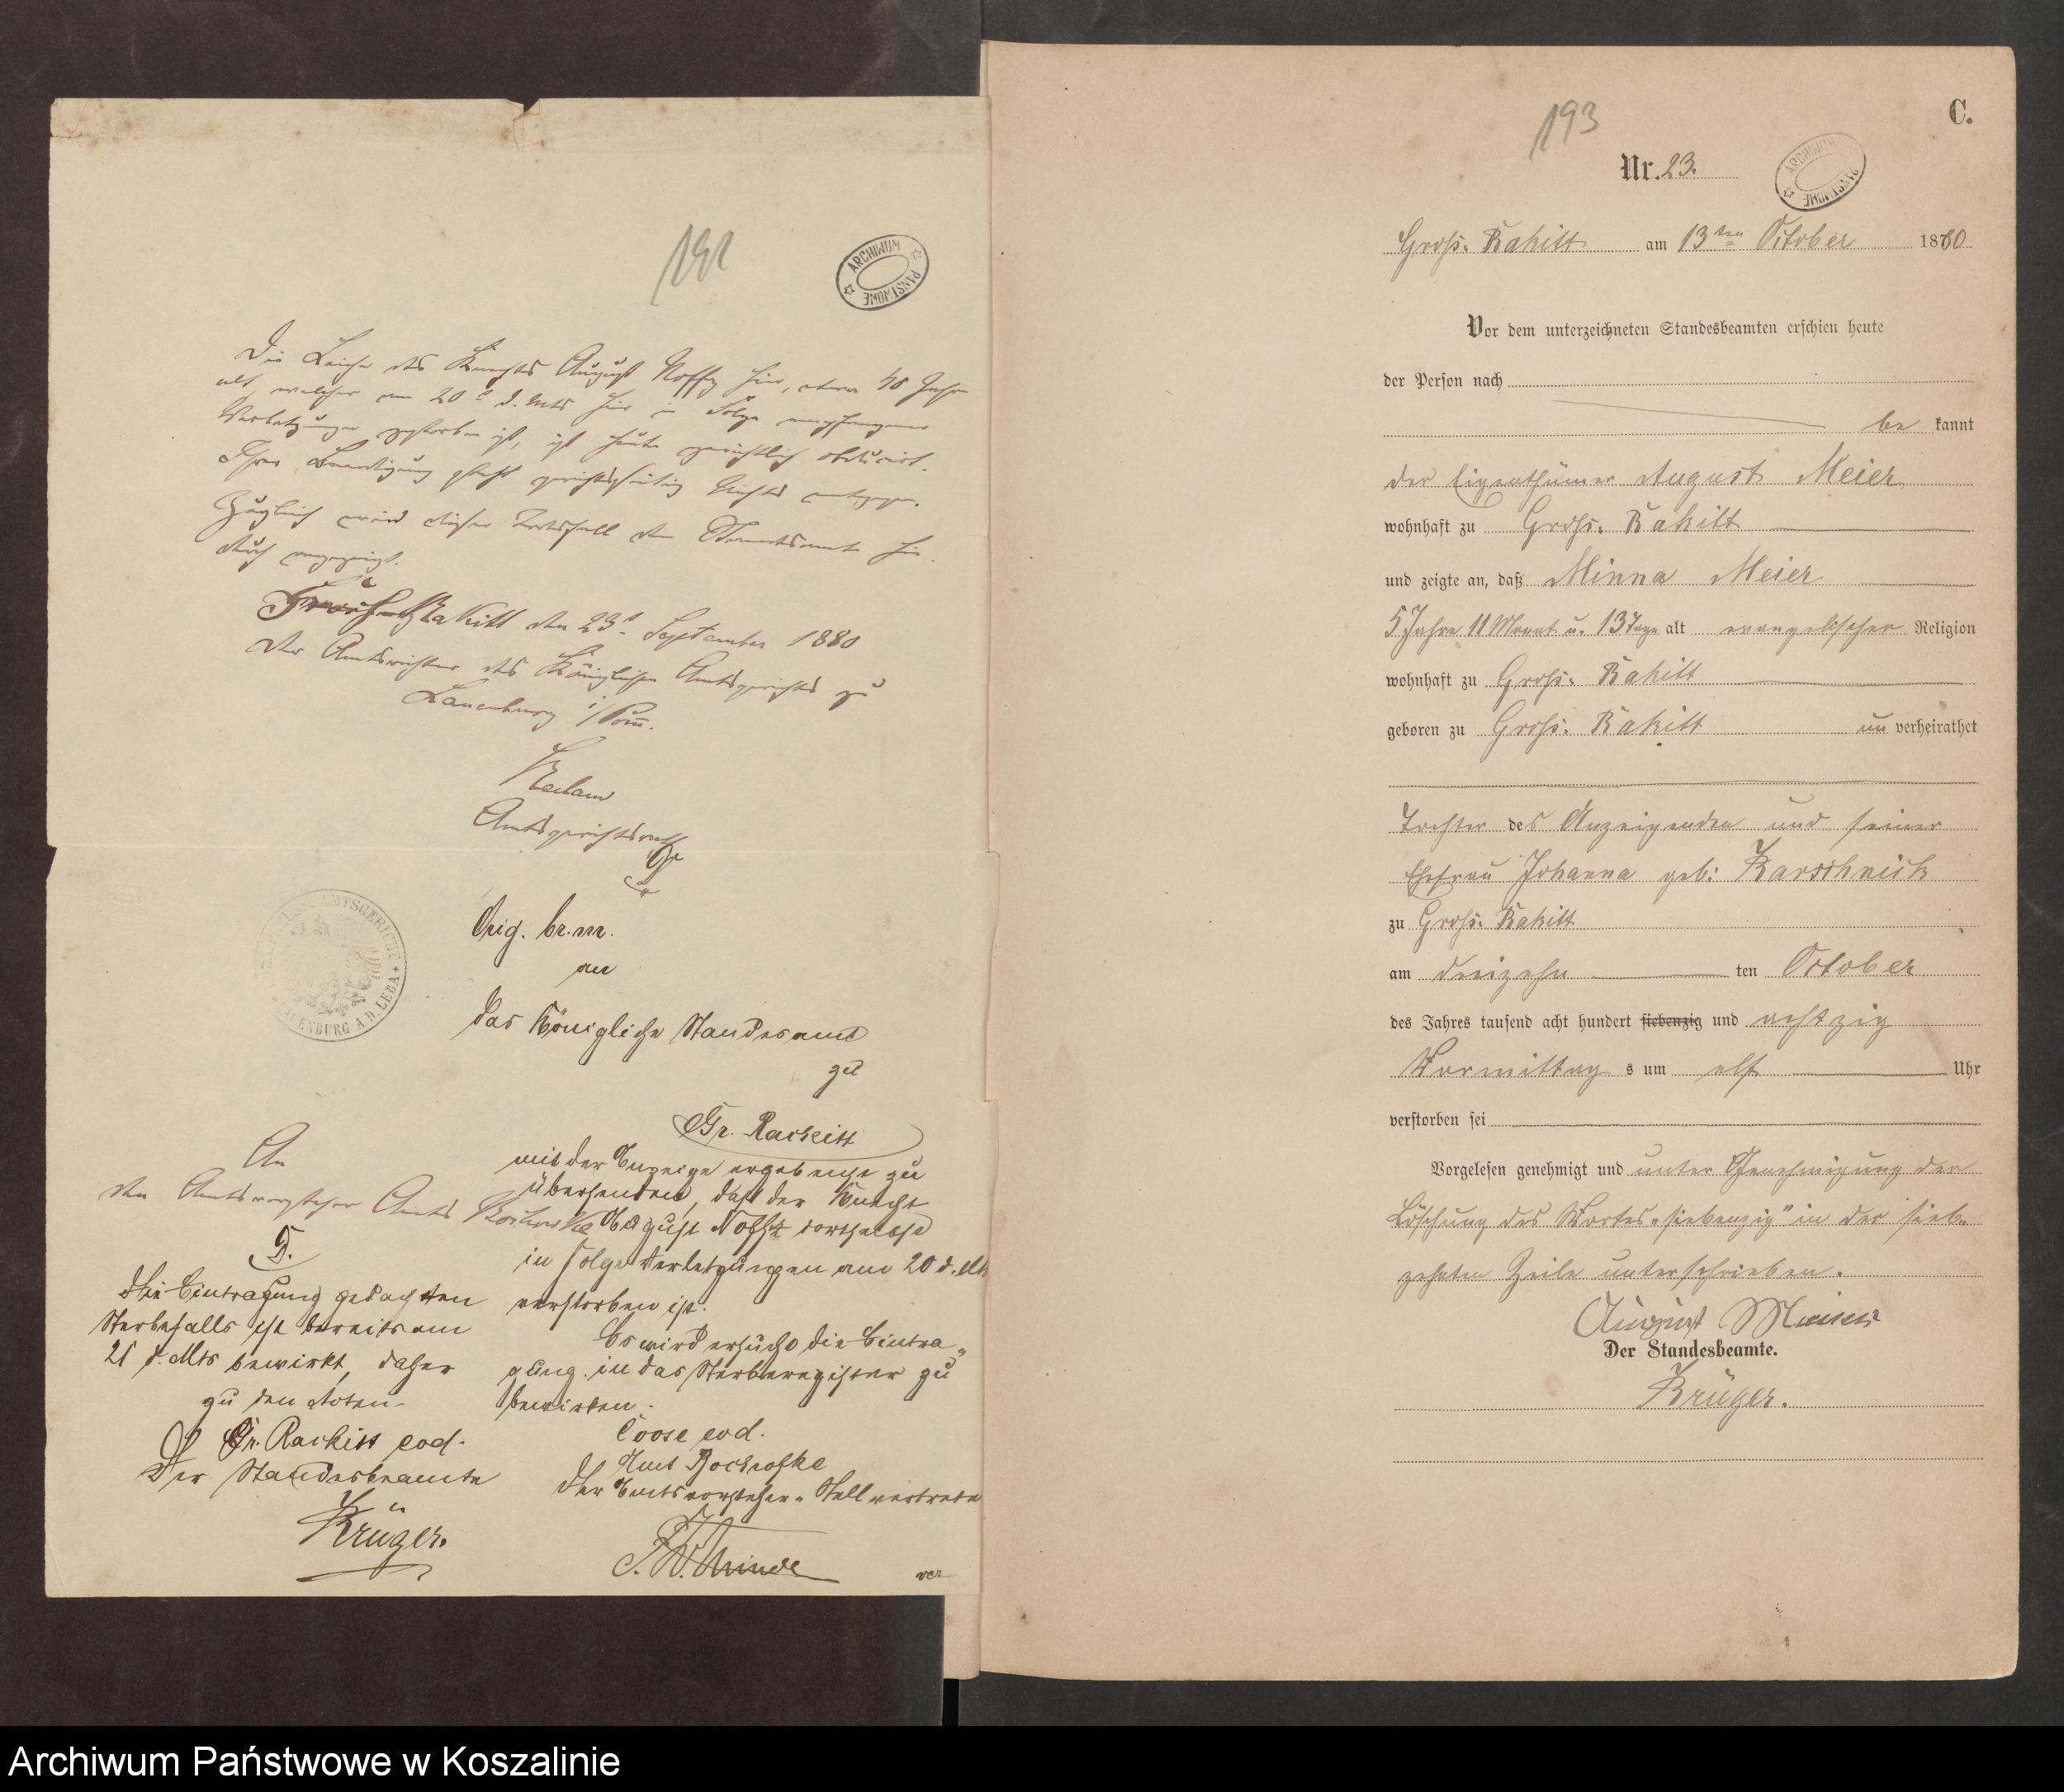 191
ARCHIWUM PAŃSTWOWE
Die Leiche des Knechts August Noffz hier, etwa 40 Jahre
alt, welcher am 20t d. Mts hier in Folge empfangener
Verletzungen gestorben ist, ist heute gerichtlich obducirt.
Ihrer Beerdigung steht gerichtsseitig Nichts entgegen.
Zugleich wird dieser Todesfall dem Standesamte hier
durch angezeigt.
Groß-Rakitt den 23t September 1880
Der Amtsrichter des Königlichen Amtsgerichts zu
Lauenburg i/Pom.
Amtsgerichtsrath
AMTSGERICHT
LAUENBURG A.D. LEBA
Orig. br. m.
an
das Königliche Standesamt
zu
Gr. Rackitt
mit der Anzeige ergebenst zu
übersenden, daß der Knecht
August Noffz dortselbst
in Folge Verletzungen am 20 d. Mts
verstorben ist.
Es wird ersucht die Eintra-
gung in das Sterberegister zu
bewirken.
Coose eod.
Amt
Der Amtsvorsteher-Stellvertreter
ver
An
den Amtsvorsteher Amts
Die Eintragung gedachten
Sterbefalls ist bereits am
21 d. Mts bewirkt, daher
zu den Acten.
Gr. Rackitt eod.
Der Standesbeamte
Krüger.
193
C.
Nr. 23.
ARCHIWUM PAŃSTWOWE
Groß-Rakitt am 13ten October 1880
Vor dem unterzeichneten Standesbeamten erschien heute
der Person nach
be kannt
der Eigenthümer August Meier
wohnhaft zu Groß-Rakitt
und zeigte an, daß Minna Meier
5 Jahre 11 Monat u. 13 Tage alt evangelischer Religion
wohnhaft zu Groß-Rakitt
geboren zu Groß-Rakitt un verheirathet
Tochter des Anzeigenden und seiner
Ehefrau Johanna geb: Karschnick
zu Groß-Rakitt
am dreizehn ten October
des Jahres tausend acht hundert siebenzig und achtzig
Vormittag s um elf Uhr
verstorben sei
Vorgelesen genehmigt und unter Genehmigung der
Löschung des Wortes „siebenzig" in der sieb-
zehnten Zeile unterschrieben.
August Meier
Der Standesbeamte.
Krüger.
Archiwum Państwowe w Koszalinie